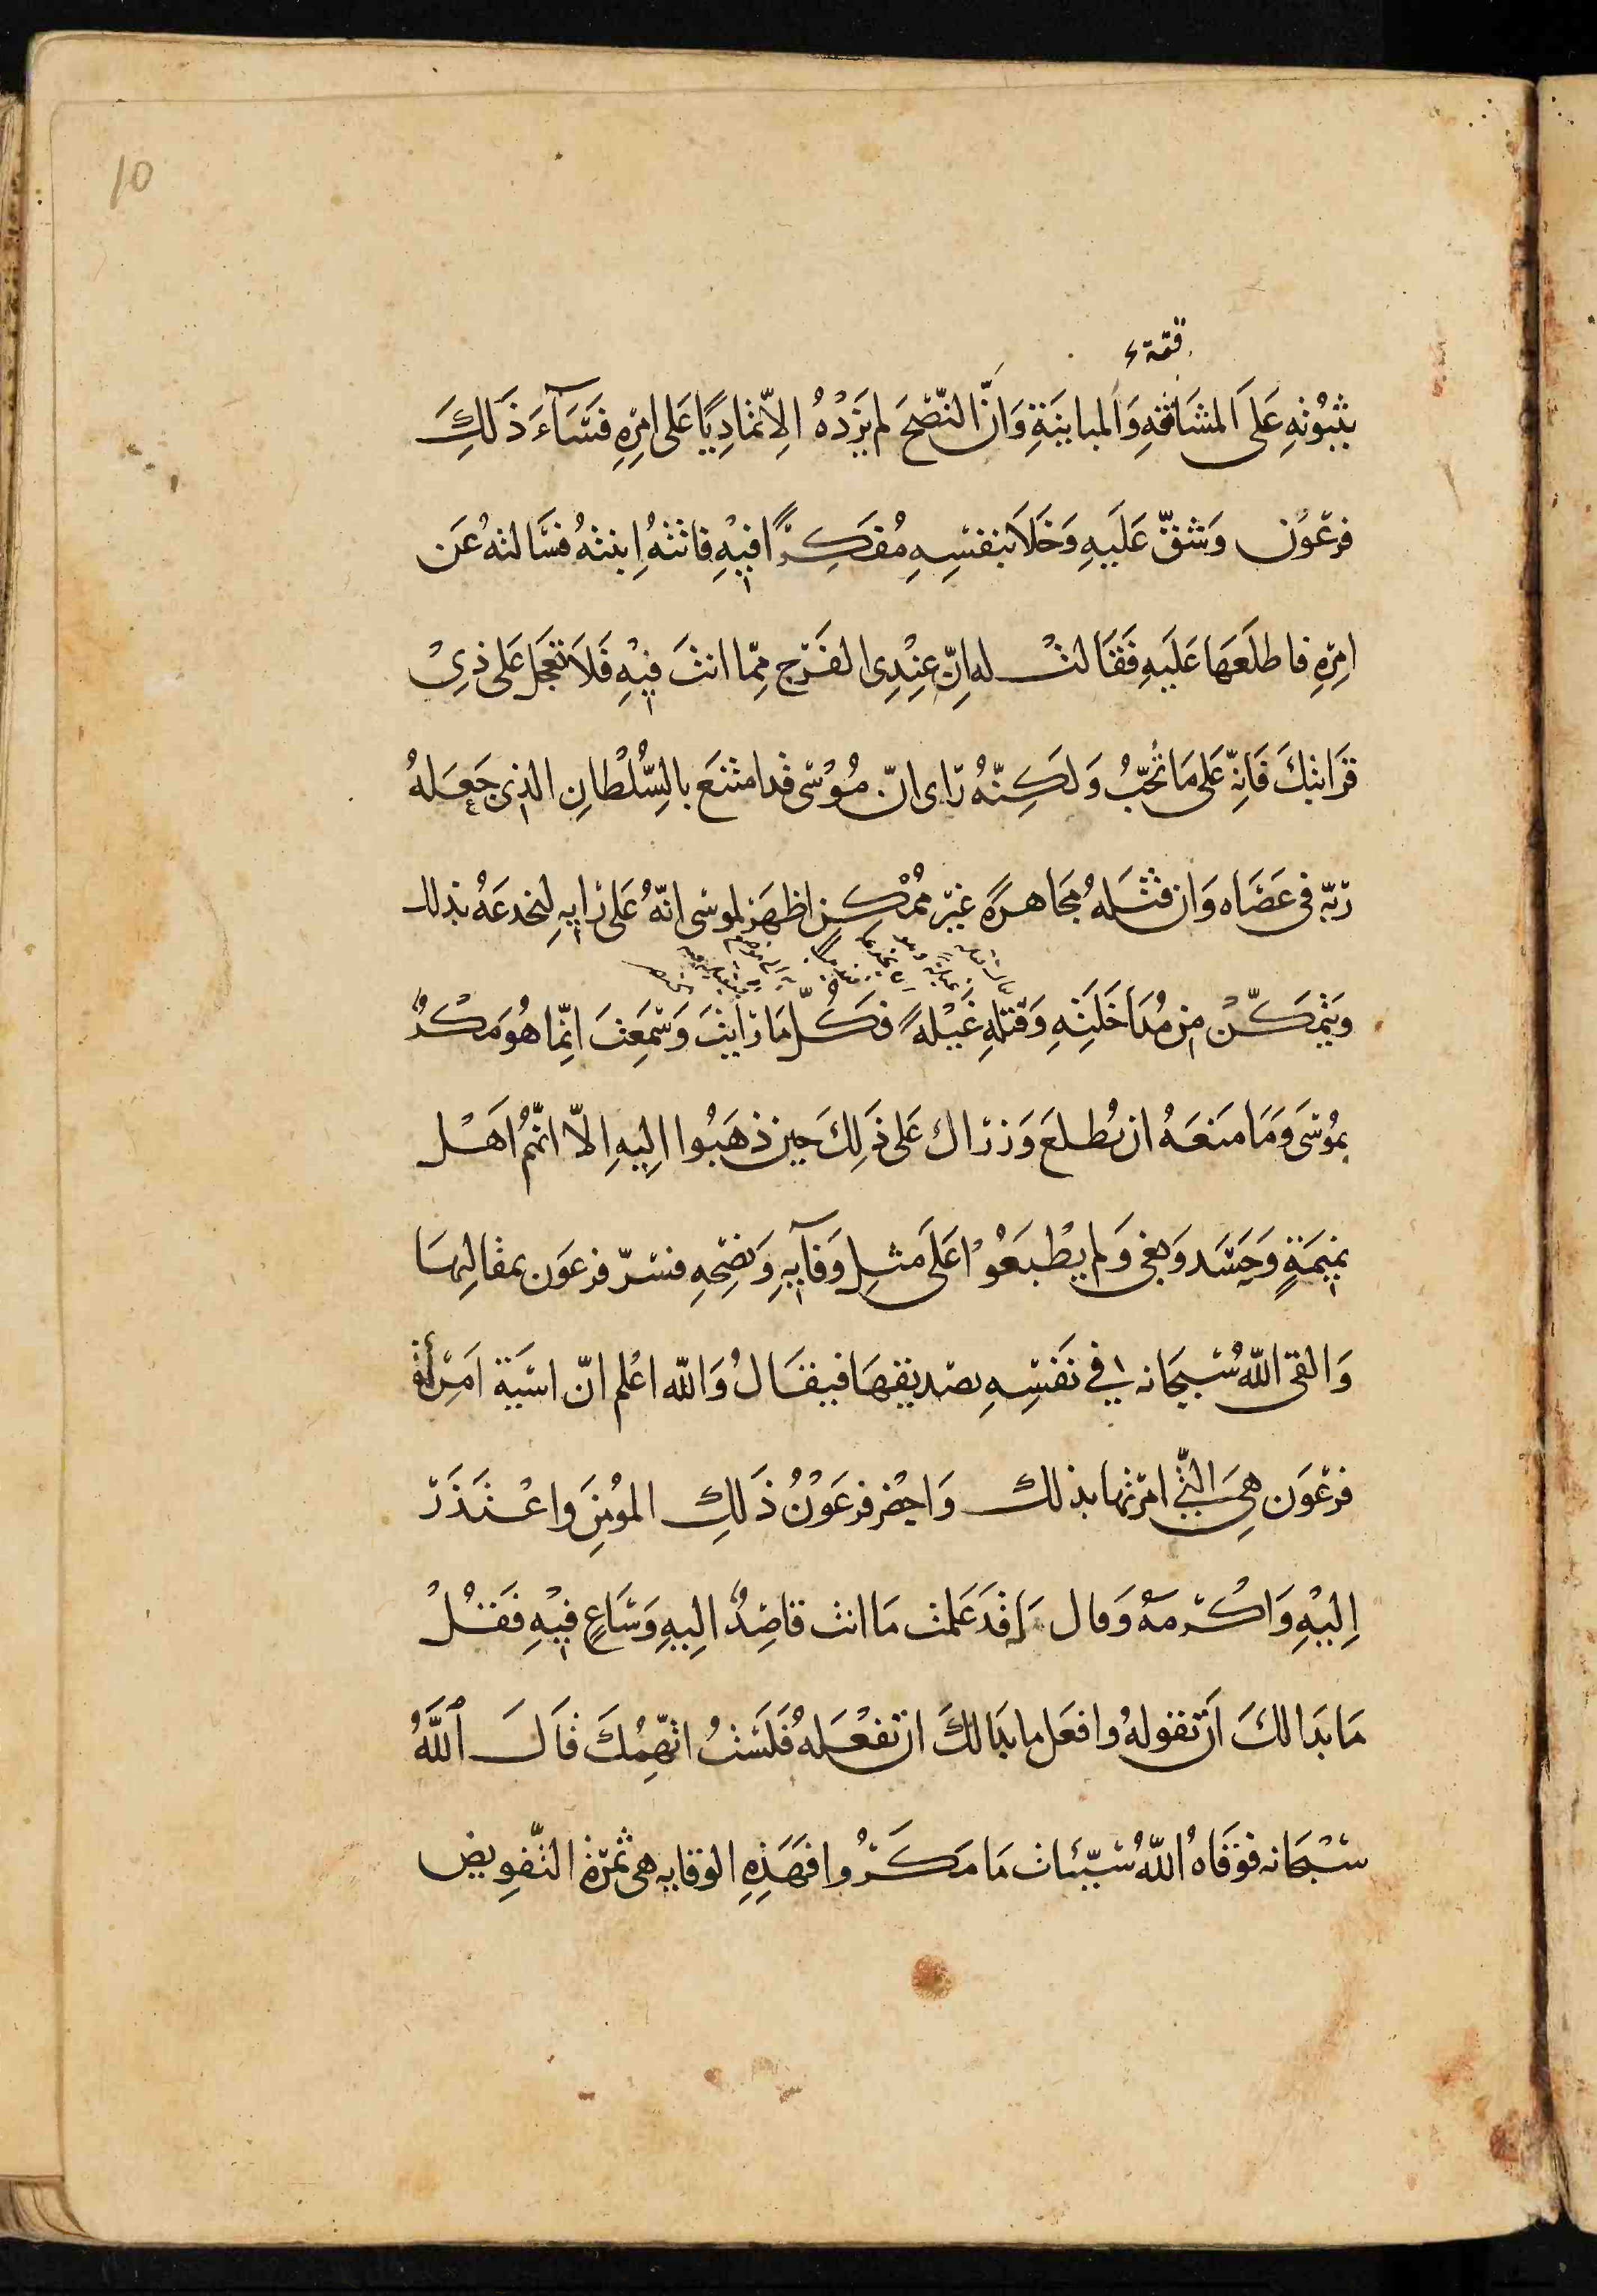 10
بثبوته على المشاققه والمباينة وان النصح لم يزده الا تماديا على امره فساء ذلك
فرعون وشق عليه وخلا بنفسه مفكرا فيه فاتته ابنته فسالته عن
امره فاطلعها عليه فقالت له ان عندى الفرج مما انت فيه فلا تعجل على ذى
قرابتك فانه على ما تحب ولكنه راى ان موسى قد امتنع بالسلطان الذى جعله
ربه فى عصاه وان قتله مجاهرة غير ممكن اظهر لموسى انه على رايه ليخدعه بذلك
ويتمكن من مداخلته وقتله غيلة فكل ما رايت وسمعت انما هو مكر
بموسى وما منعه ان يطلع وزراك على ذلك حين ذهبوا اليه الا انهم اهل
نميمة وحسد وبغى ولم يطبعوا على مثل وفايه ونصحه فسر فرعون بمقالتها
والقى الله سبحانه فى نفسه تصديقها فيقال والله اعلم ان اسية امراة
فرعون هى التى امرتها بذلك واحضر فرعون ذلك المومن واعتذر
اليه واكرمه وقال قد علمت ما انت قاصد اليه وساع فيه فقل
ما بدا لك ان تقوله وافعل ما بدا لك ان تفعله فلست اتهمك قال الله
سبحانه فوقاه الله سيئات ما مكروا فهذه الوقايه هى ثمرة التفويض